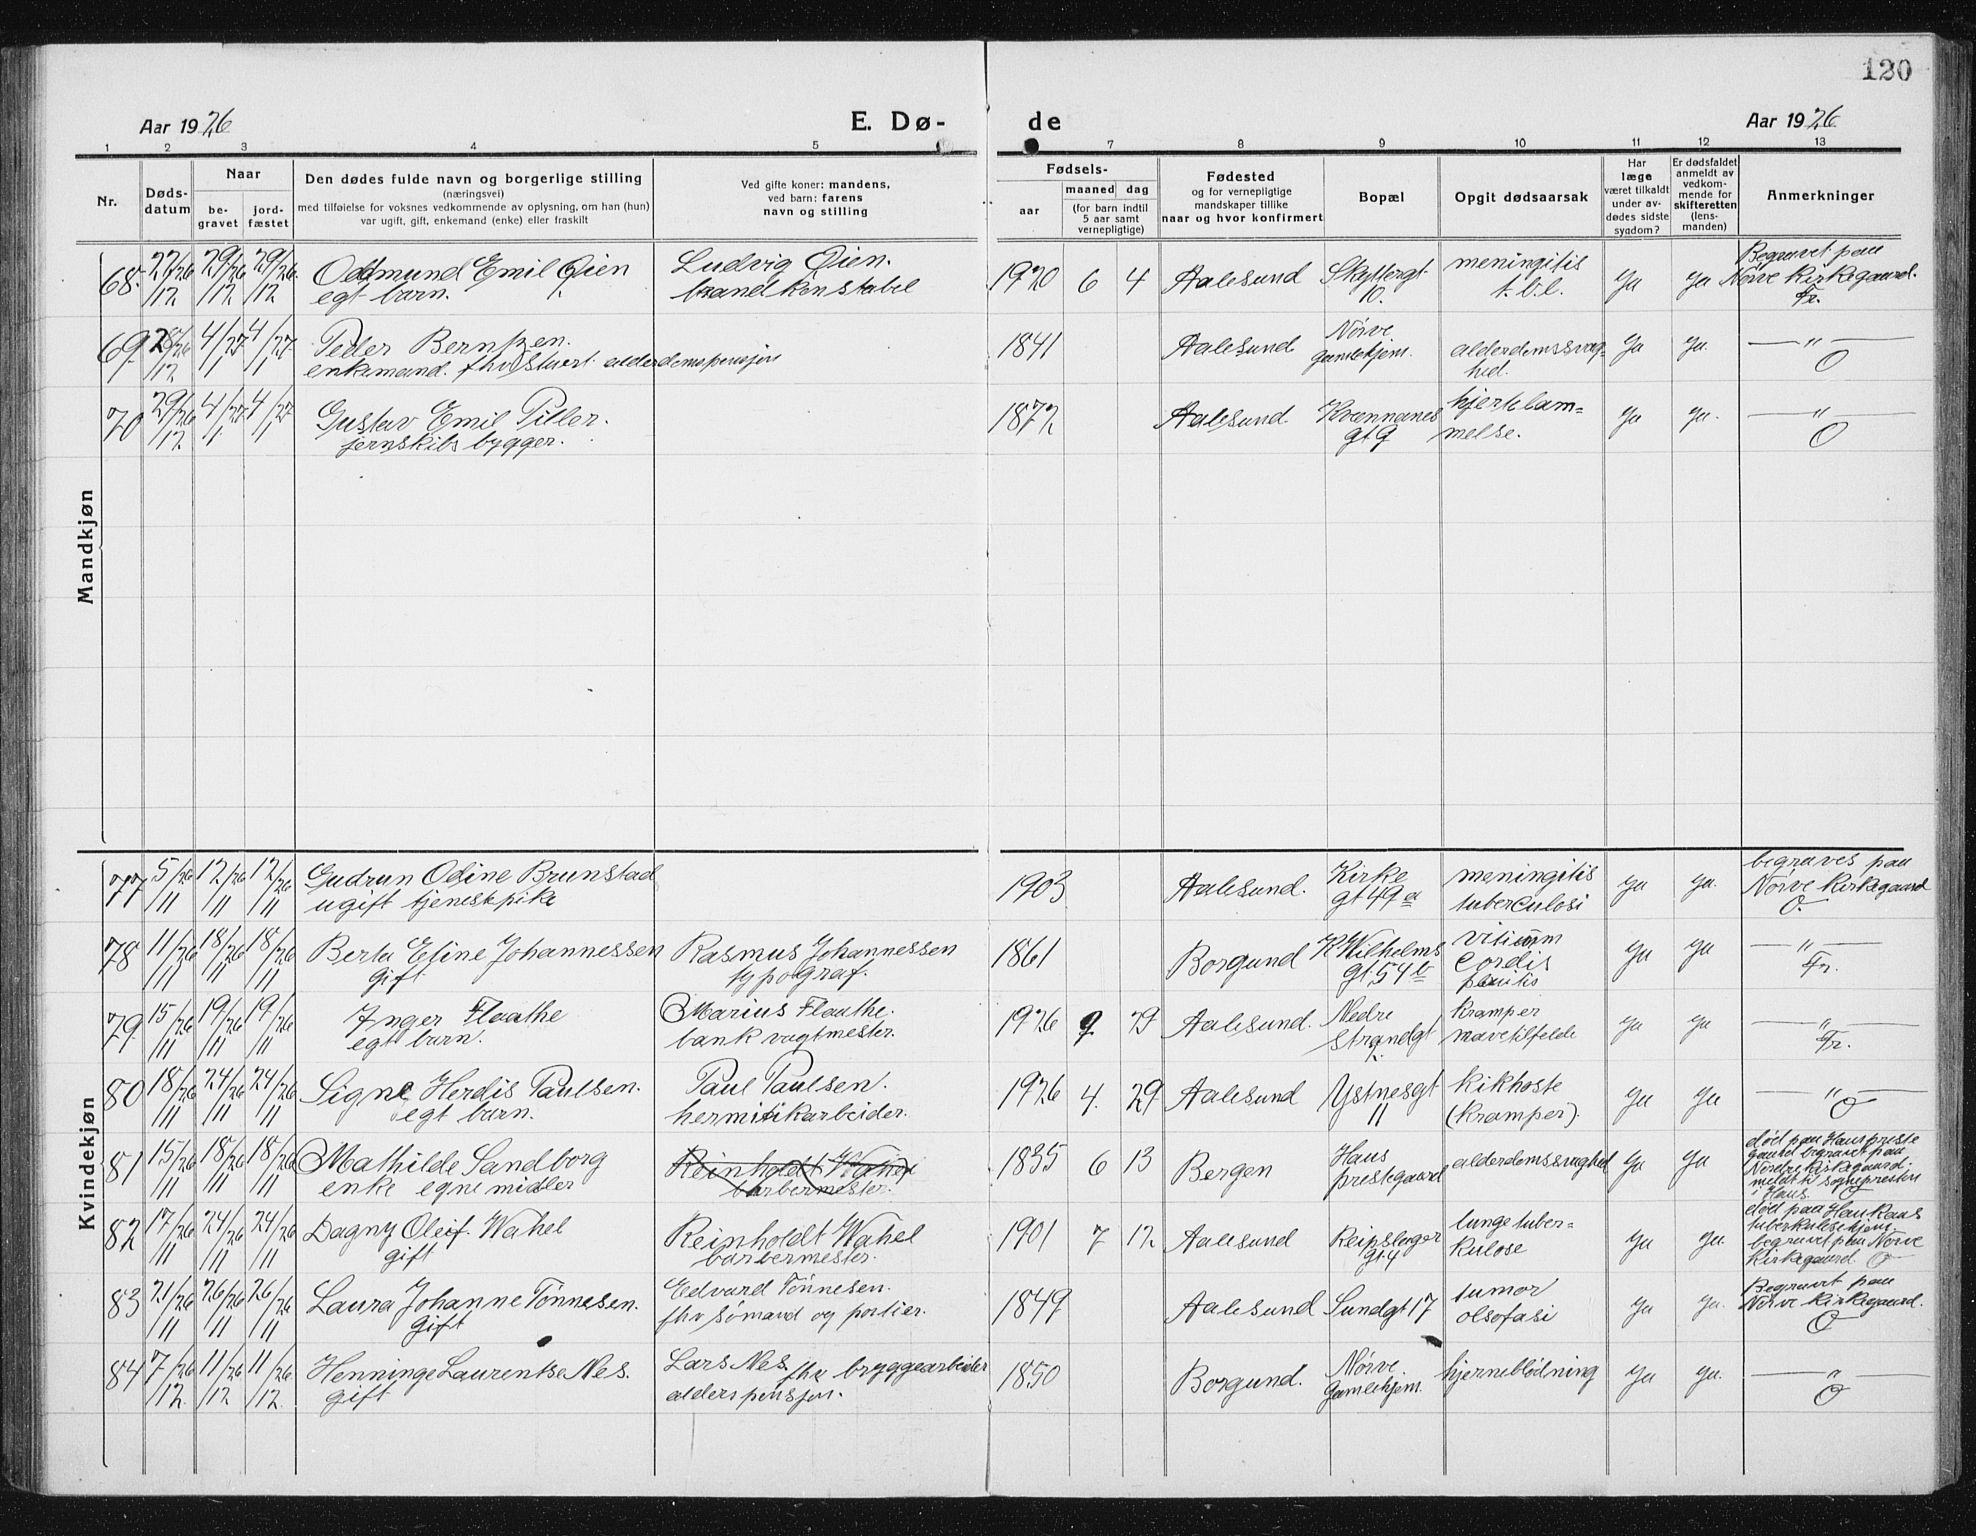 120
Aar 1926
E. Dø-
de
Aar 1926
1 2 3 4 5 7 8 9 10 11 12 13
Nr.
Døds-
datum
Naar
be-
gravet
jord-
fæstet
Den dødes fulde navn og borgerlige stilling
(næringsvei)
med tilføielse for voksnes vedkommende av oplysning, om han (hun)
var ugift, gift, enkemand (enke) eller fraskilt
Ved gifte koner: mandens,
ved barn: farens
navn og stilling
Fødsels-
aar
maaned dag
(for barn indtil
5 aar samt
vernepligtige)
Fødested
og for vernepligtige
mandskaper tillike
naar og hvor konfirmert
Bopæl
Opgit dødsaarsak
Har
læge
været tilkaldt
under av-
dødes sidste
sygdom?
Er dødsfaldet
anmeldt av
vedkom-
mende for
skifteretten
(lens-
manden)
Anmerkninger
Mandkjøn
68. 27/26 12 29/26 12 29/26 12 Oddmund Emil Øien Ludvig Øien. 1920 6 4 Aalesund Skyttergt. meningitis Ja Ja Begravet paa
egt barn. brandkonstabel 10. t.b.l. Nørve kirkegaard.
Fr.
69. 28/26 12 4/27 1 4/27 1 Peder Berntzen. 1841 Aalesund Nørve alderdomssvag- Ja Ja. — " —
enkemand. fhv. stuert. alderdomspensjon gamlehjem. hed. O
70 29/26 12 4/27 1 4/27 1 Gustav Emil Piller. 1872 Aalesund Kvennanes hjertelam= Ja Ja. — " —
jernskibsbygger. gt 9 melse. O
Kvindekjøn
77 5/26 11 12/26 11 12/26 11 Gudrun Odine Brunstad 1903 Aalesund. Kirke meningitis Ja Ja. begraves paa
ugift tjenestpike gt 49a tuberculosi Nørve kirkegaard
O.
78 11/26 11 18/26 11 18/26 11 Berta Eline Johannessen Rasmus Johannessen 1861 Borgund K Wilhelms vitium Ja Ja — " —
gift typograf. gt 54b cordis Fr.
79. 15/26 11 19/26 11 19/26 11 Inger Flaathe Marius Flaathe. 1926 9 29 Aalesund. Nedre kramper Ja Ja — " —
egt barn. bank vagtmester. strandgt mavetilfelde Fr.
80 18/26 11 24/26 11 24/26 11 Signe Herdis Paulsen. Paul Paulsen. 1926 4. 29 Aalesund Ystnesgt kikhoste Ja Ja — " —
egt barn. hermitikarbeider. 11 (kramper). O
81 15/26 11 18/26 11 18/26 11 Mathilde Sandborg Reinholdt Wahel 1835 6 13 Bergen Haus alderdomssvaghed Ja Ja død paa Haus preste
enke egne midler barbermester. prestegaard gaard begravet paa
Nordre kirkegaard.
meldt ti sognepresten
i Haus. O
82 17/26 11 24/26 11 24/26 11 Dagny Oleif. Wahel Reinholdt Wahel 1901 7 12 Aalesund Reipslager lunge tuber- Ja Ja. død paa Haukaas
gift barbermester. gt. 4 kulose tuberkulosehjem.
begravet paa Nørve
kirkegaard O
83 21/26 11 26/26 11 26/26 11 Laura Johanne Tønnesen. Edvard Tønnesen. 1849 Aalesund Sundgt 17 tumor Ja Ja. Begravet paa
gift fhv sømand og portier. olsofasi Nørve kirkegaard.
O
84 7/26 12. 11/26 12 11/26 12. Henninge Laurentse Nes. Lars Nes. fhv bryggearbeider 1850 Borgund. Nørve hjerneblødning Ja Ja. — " —
gift alderspensjon. Gamlehjem. O